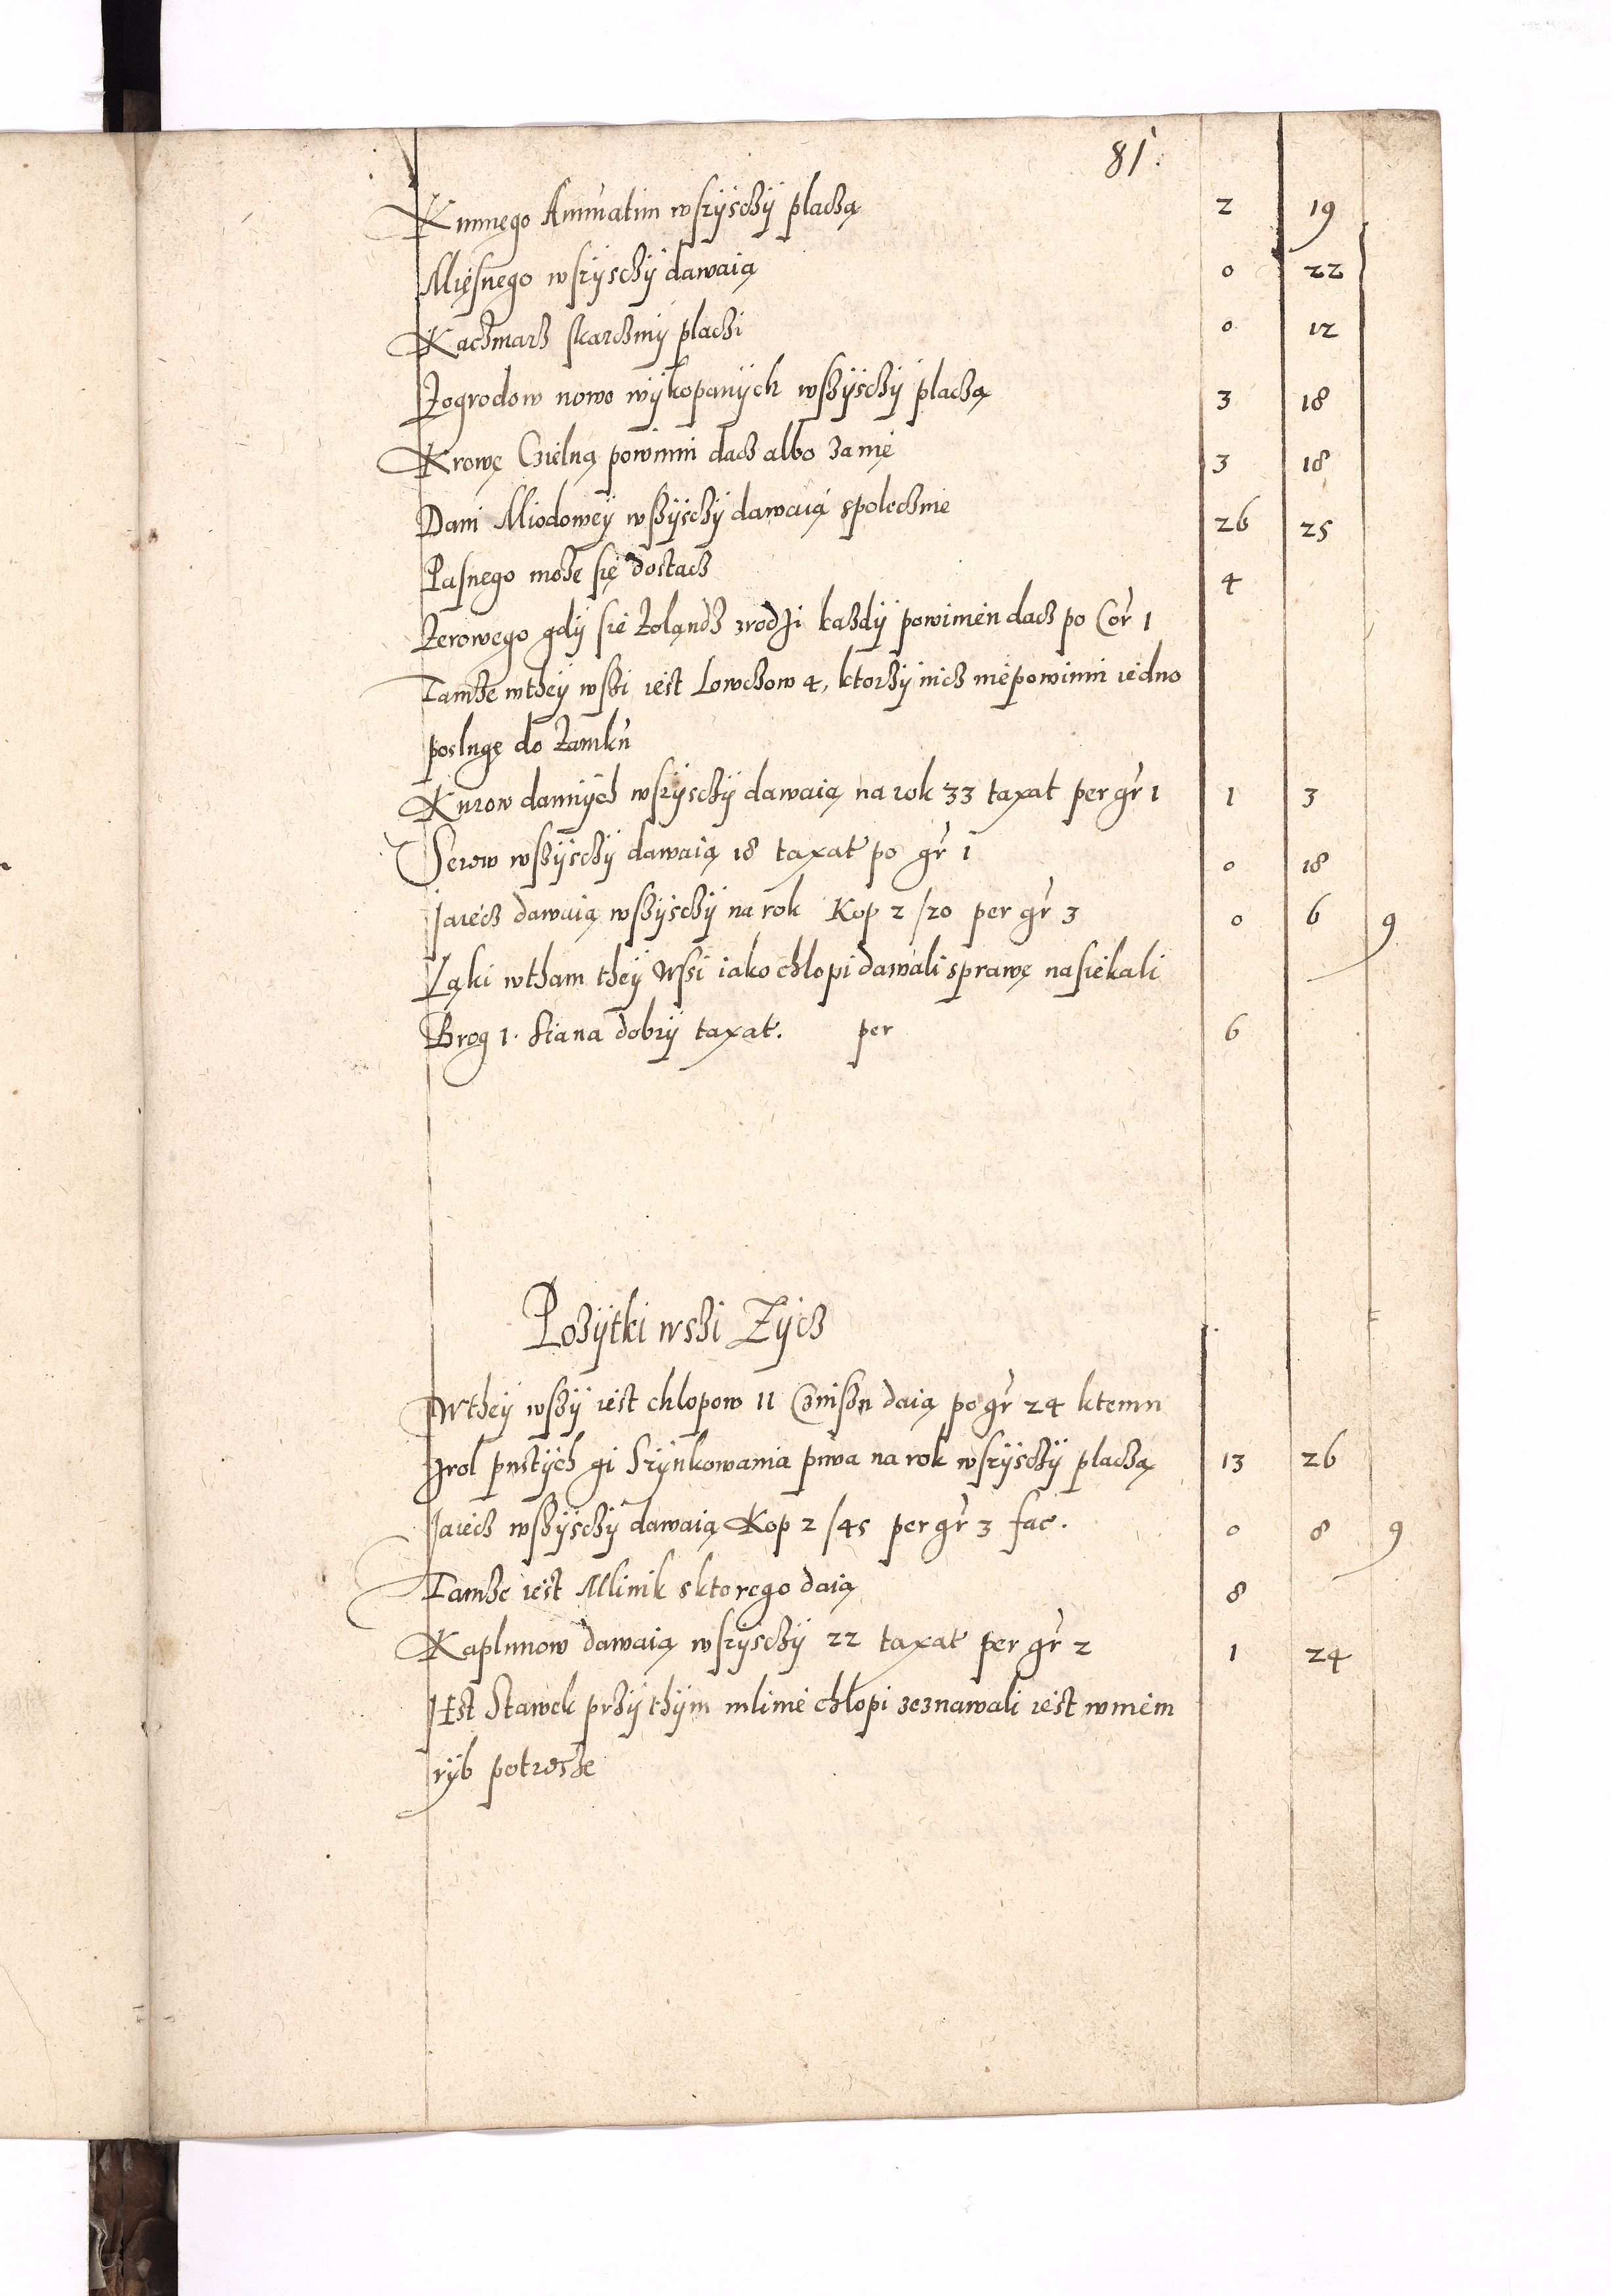 81.
Kunnego Annuatim wszÿsczÿ placzą 2 19
Mięsnego wszÿsczÿ dawaią 0 22
Kaczmarz skarczmÿ placzi 0 12
Zogrodow nowo wÿkopanÿch wszÿsczÿ placzą 3 18
Krowę Czielną powinni dacz albo zanię 3 18
Dani Miodoweÿ wszÿsczÿ dawaią spolecznie 26 25
Pasnego może się dostacz 4
Zerowego gdÿ sie Zolandz zrodzi każdÿ powinien dacz po Cor 1
Tamże wtheÿ wszi iest Lowczow 4, ktorzÿ nicz niepowinni iedno
poslugę do Zamku
Kurow dannÿch wszÿsczÿ dawaią na rok 33 taxat per gr 1 1 3
Serow wszÿsczÿ dawaią 18 taxat po gr 1 0 18
Jaiecz dawaią wszÿsczÿ na rok Kop 2/20 per gr 3 0 6 9
Ląki wtham theÿ Wssi iako chlopi dawali sprawę nasiekali
Brog 1. siana dobrÿ taxat. per 6
Pożÿtki wszi Zÿcz
Wtheÿ wszÿ iest chlopow 11 Czinszu daią po gr 24 ktemu
zrol pustÿch ÿ Szÿnkowania piwa na rok wszÿsczÿ placzą 13 26
Jaiecz wszÿsczÿ dawaią Kop 2/45 per gr 3 fac. 0 8 9
Tamże iest Mlinik sktorego daią 8
Kaplunow dawaią wszÿsczÿ 22 taxat per gr 2 1 24
IEst Stawek przÿ thÿm mlinie chłopi zeznawali iest wniem
rÿb potrosze